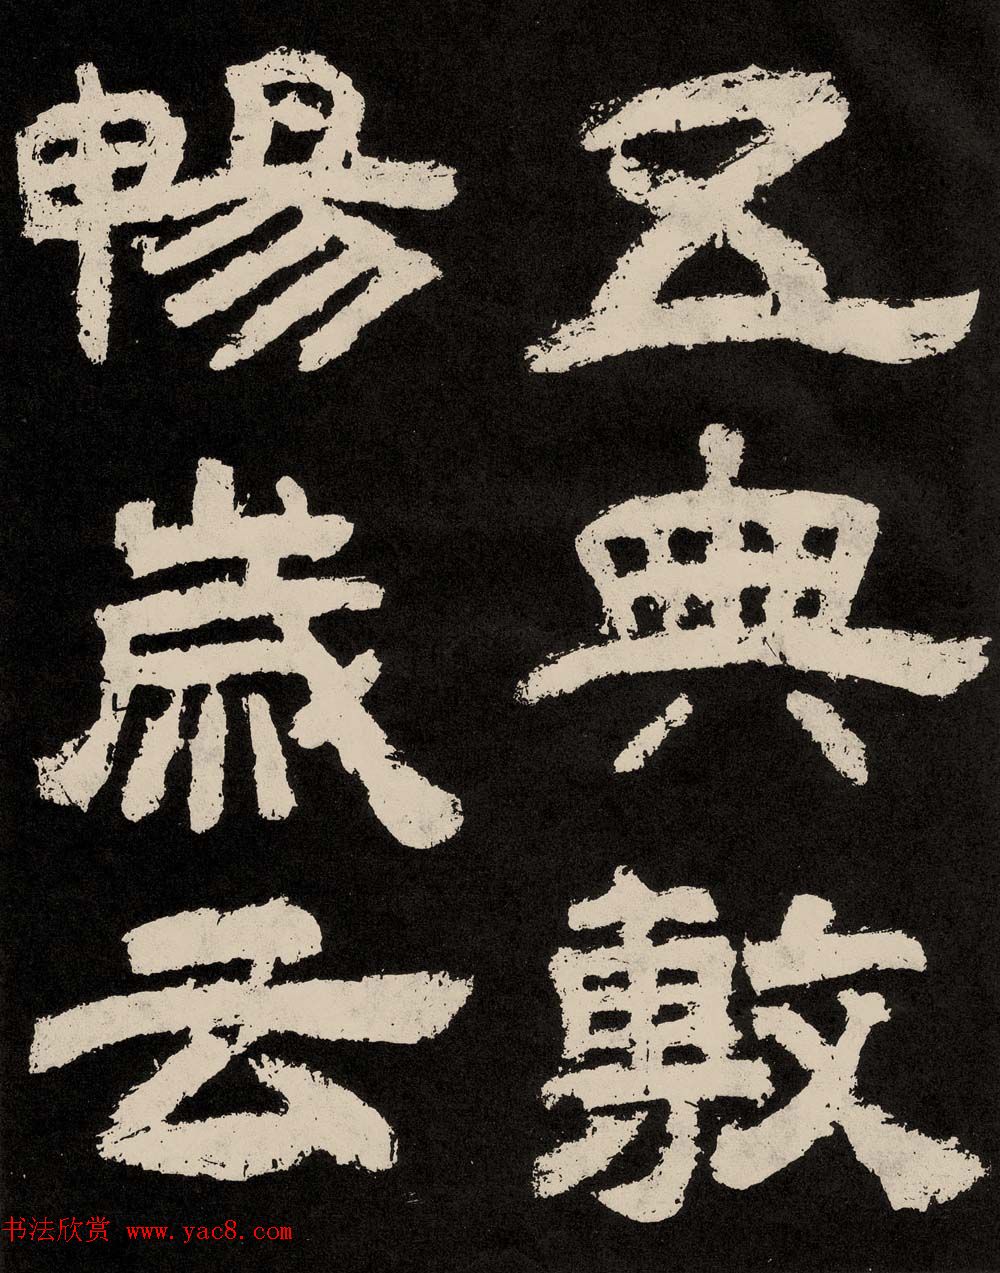 五典敷
暢歲云
书法欣赏 www.yac8.com